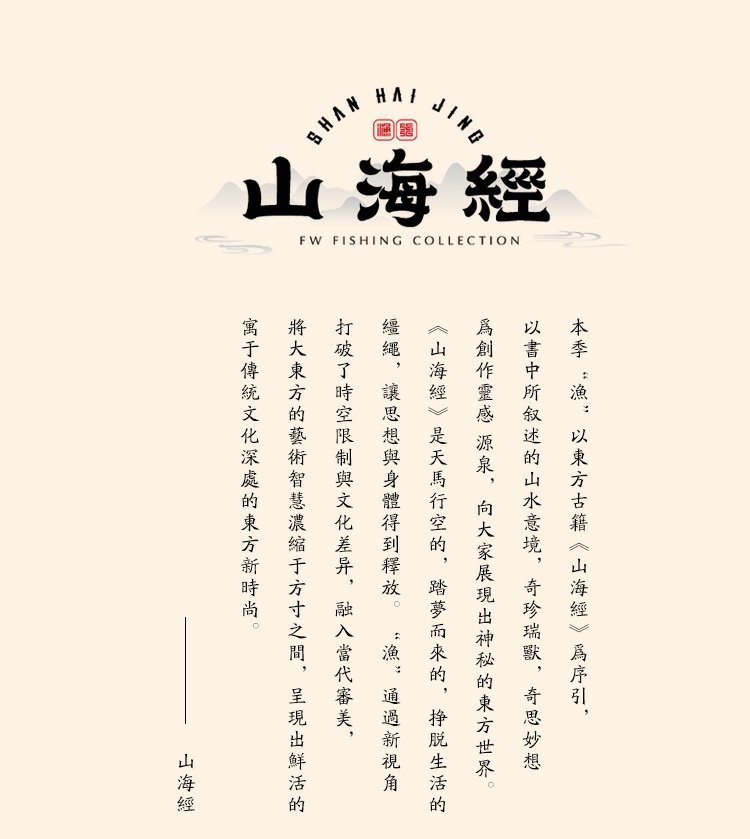 SHAN HAI JING
山海經
FW FISHING COLLECTION
本季“漁”以東方古籍《山海經》爲序引，
以書中所叙述的山水意境，奇珍瑞獸，奇思妙想
爲創作靈感 源泉，向大家展現出神秘的東方世界。
《山海經》是天馬行空的，踏夢而來的，挣脱生活的
繮繩，讓思想與身體得到釋放。“漁”通過新視角
打破了時空限制與文化差异，融入當代審美，
將大東方的藝術智慧濃縮于方寸之間，呈現出鮮活的
寓于傳統文化深處的東方新時尚。
山海經